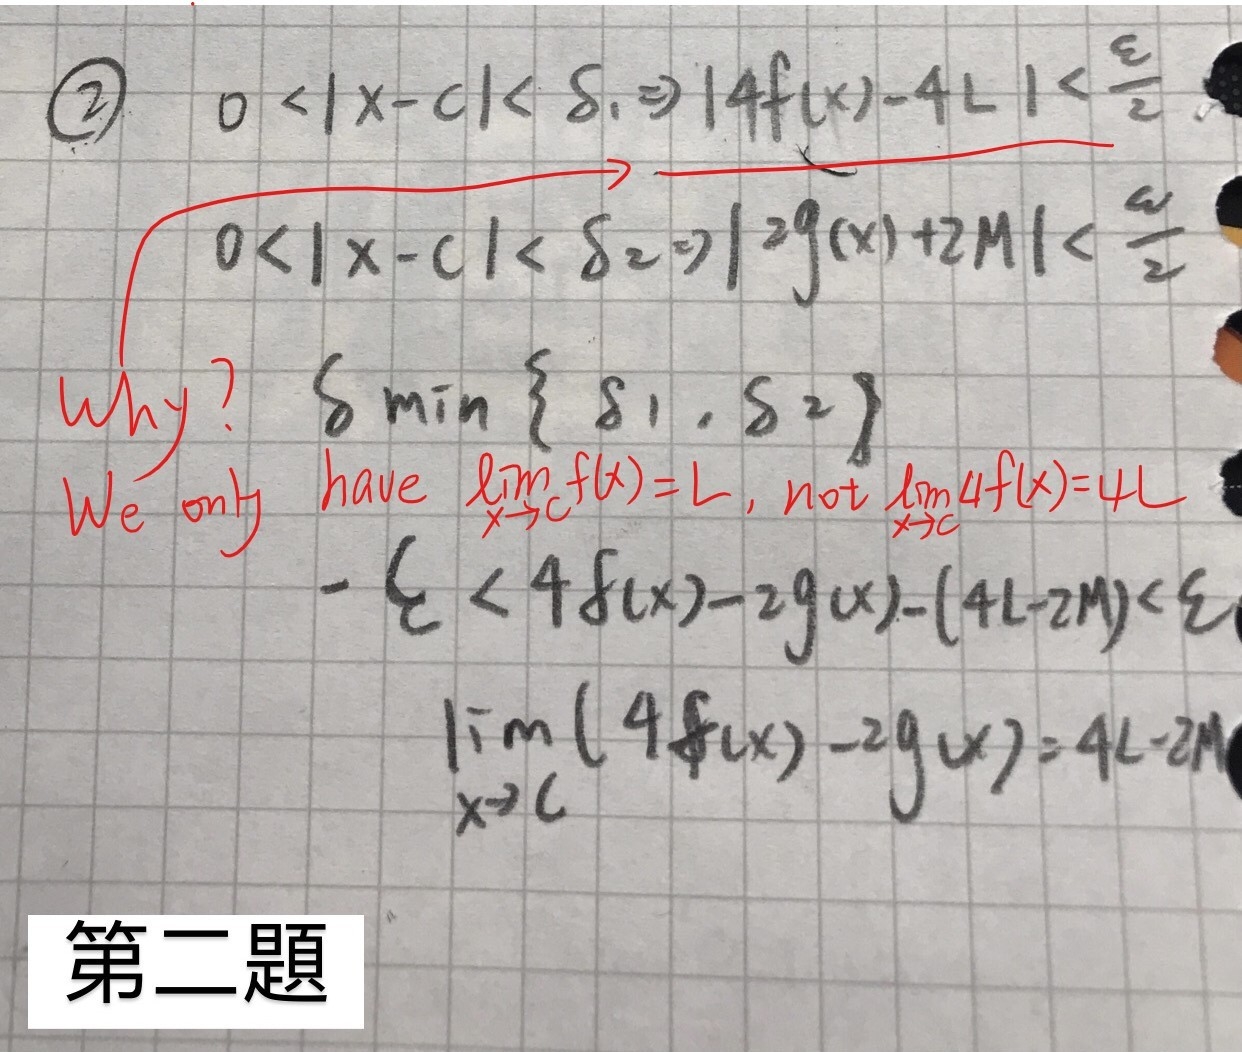 ② 0 < |x-c| < δ₁ ⇒ |4f(x)-4L| < ε/2
0 < |x-c| < δ₂ ⇒ |2g(x)+2M| < ε/2
Why? δ min { δ1 , δ2 }
We only have lim x→c f(x) = L, not lim x→c 4f(x) = 4L
-ε < 4f(x)-2g(x)-(4L-2M) < ε
lim x→c (4f(x)-2g(x)) = 4L-2M
第二題